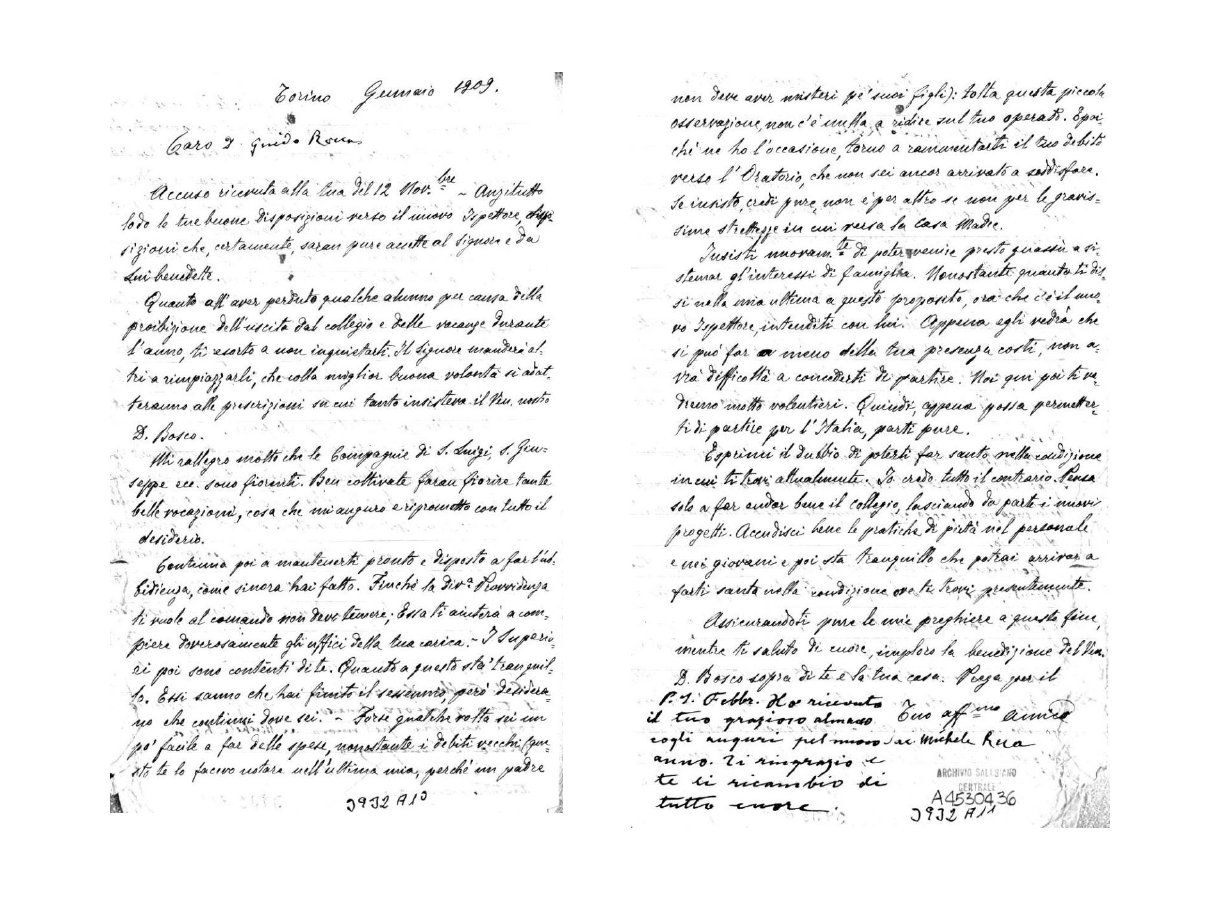 Torino Gennaio 1909.
Caro D. Guido Rocca
Accuso ricevuta alla tua del 12 Nov.bre - Anzitutto
lodo le tue buone disposizioni verso il nuovo Ispettore, dispo
sizioni che, certamente, saran pure accette al Signore e da
Lui benedette.
Quanto all'aver perduto qualche alunno per causa della
proibizione dell'uscita dal collegio e delle vacanze durante
l'anno, ti esorto a non inquietarti. Il Signore manderà al-
tri a rimpiazzarli, che colla miglior buona volontà si adat-
teranno alle prescrizioni su cui tanto insisteva il Ven. nostro
D. Bosco.
Mi rallegro molto che le Compagnie di S. Luigi, S. Giu-
seppe ecc. sono fiorenti. Ben coltivate faran fiorire tante
belle vocazioni, cosa che mi auguro e riprometto con tutto il
desiderio.
Continua poi a mantenerti pronto e disposto a far l'ub-
bidienza, come sinora hai fatto. Finchè la Div.a Provvidenza
ti vuole al comando non devi temere; Essa ti aiuterà a com-
piere doverosamente gli uffici della tua carica. - I Superio-
ri poi sono contenti di te. Quanto a questo sta' tranquil-
lo. Essi sanno che hai finito il sessennio, però desidera-
no che continui dove sei. - Forse qualche volta sei un
po' facile a far delle spese, nonostante i debiti vecchi (que-
sto te lo facevo notare nell'ultima mia, perché un padre
3932 A10
non deve aver misteri pe' suoi figli): tolta questa piccola
osservazione, non c'è nulla a ridire sul tuo operato. E poi-
chè ne ho l'occasione, torno a rammentarti il tuo debito
verso l'Oratorio, che non sei ancor arrivato a soddisfare.
Se insisto, credi pure, non è per altro se non per le gravis-
sime strettezze in cui versa la Casa Madre.
Insisti nuovam.te di poter venire presto quassù a si-
stemar gl'interessi di famiglia. Nonostante quanto ti dis-
si nella mia ultima a questo proposito, ora che c'è il nuo-
vo Ispettore, intenditi con lui. Appena egli vedrà che
si può far a meno della tua presenza costì, non a-
vrà difficoltà a concederti di partire. Noi qui poi ti ve-
dremo molto volentieri. Quindi, appena possa permetter-
ti di partire per l'Italia, parti pure.
Esprimi il dubbio di poterti far santo nella condizione
in cui ti trovi attualmente. Io credo tutto il contrario. Pensa
solo a far andar bene il collegio, lasciando da parte i nuovi
progetti. Accudisci bene le pratiche di pietà nel personale
e nei giovani e poi sta tranquillo che potrai arrivar a
farti santo nella condizione ove ti trovi presentemente.
Assicurandoti pure le mie preghiere a questo fine,
mentre ti saluto di cuore, imploro la benedizione del Ven.
D. Bosco sopra di te e la tua casa. Prega per il
Tuo aff.mo amico
Sac. Michele Rua
P. S. Febbr. Ho ricevuto
il tuo grazioso almanco
cogli auguri pel nuovo
anno. Ti ringrazio e
te li ricambio di
tutto cuore.
ARCHIVIO SALESIANO
CENTRALE
A4530436
3932 A11